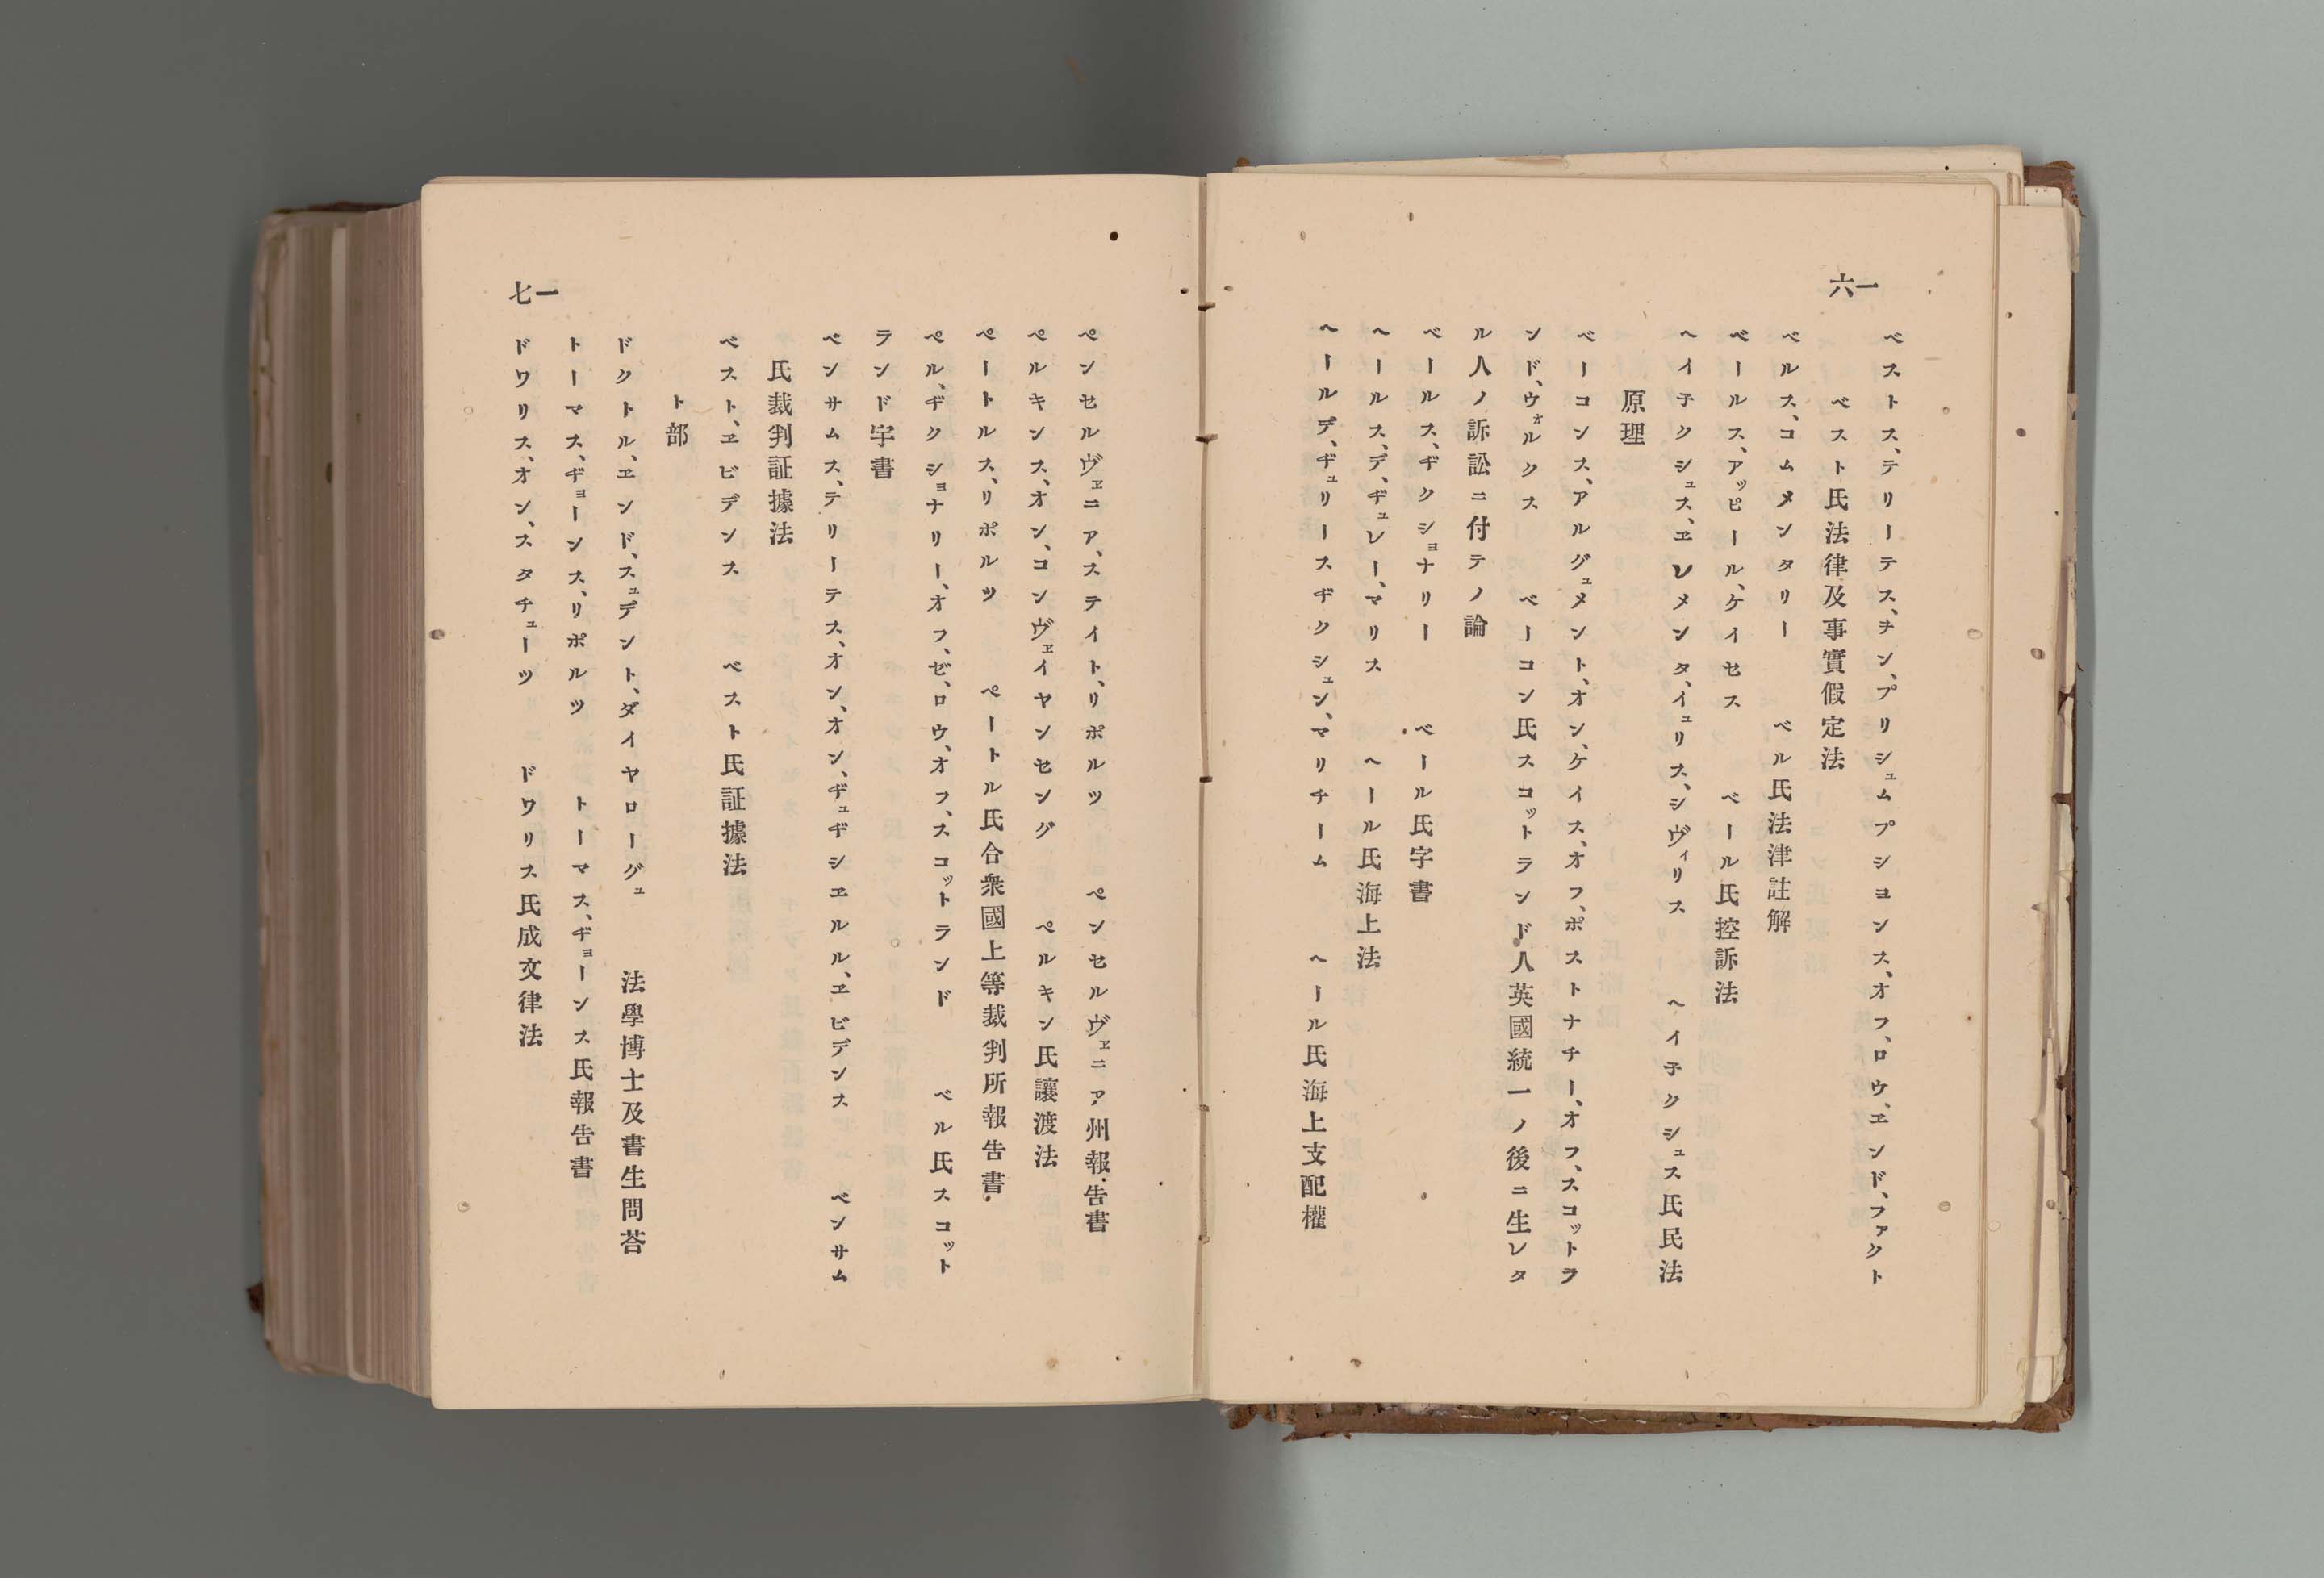 一六
ベストス、テリーテス、ヲン、プリシュムプシヨンス、オフ、ロウ、エンド、ファクト
ベスト氏法律及事實假定法
ベルス、コムメンタリー　ベル氏法律註解
ベールス、アッピール、ケイセス　ベール氏控訴法
ヘイ子クシュス、エレメンタ、イュリス、シヴィリス　ヘイ子クシュス氏民法
原理
ベーコンス、アルグュメント、オン、ケイス、オフ、ポストナチー、オフ、スコットラ
ンド、ウォルクス　ベーコン氏スコットランド人英國統一ノ後ニ生レタ
ル人ノ訴訟ニ付テノ論
ベールス、ヂクショナリー　ベール氏字書
ヘールス、デ、ヂュレー、マリス　ヘール氏海上法
ヘールデ、ヂュリースヂクシュン、マリチーム　ヘール氏海上支配權
ペンセルヴェニア、ステイト、リポルツ　ペンセルヴェニア州報告書
ペルキンス、オン、コンヴェイヤンセング　ペルキン氏讓渡法
ペートルス、リポルツ　ペートル氏合衆國上等裁判所報告書
ベル、ヂクショナリー、オフ、ゼ、ロウ、オフ、スコットランド　ベル氏スコット
ランド字書
ベンサムス、テリーテス、オン、オン、ヂュヂシエルル、エビデンス　ベンサム
氏裁判証據法
ベスト、エビデンス　ベスト氏証據法
ト部
ドクトル、エンド、スュデント、ダイヤローグュ　法學博士及書生問荅
トーマス、ヂョーンス、リポルツ　トーマス、ヂョーンス氏報告書
ドワリス、オン、スタチューツ　ドワリス氏成文律法
一七